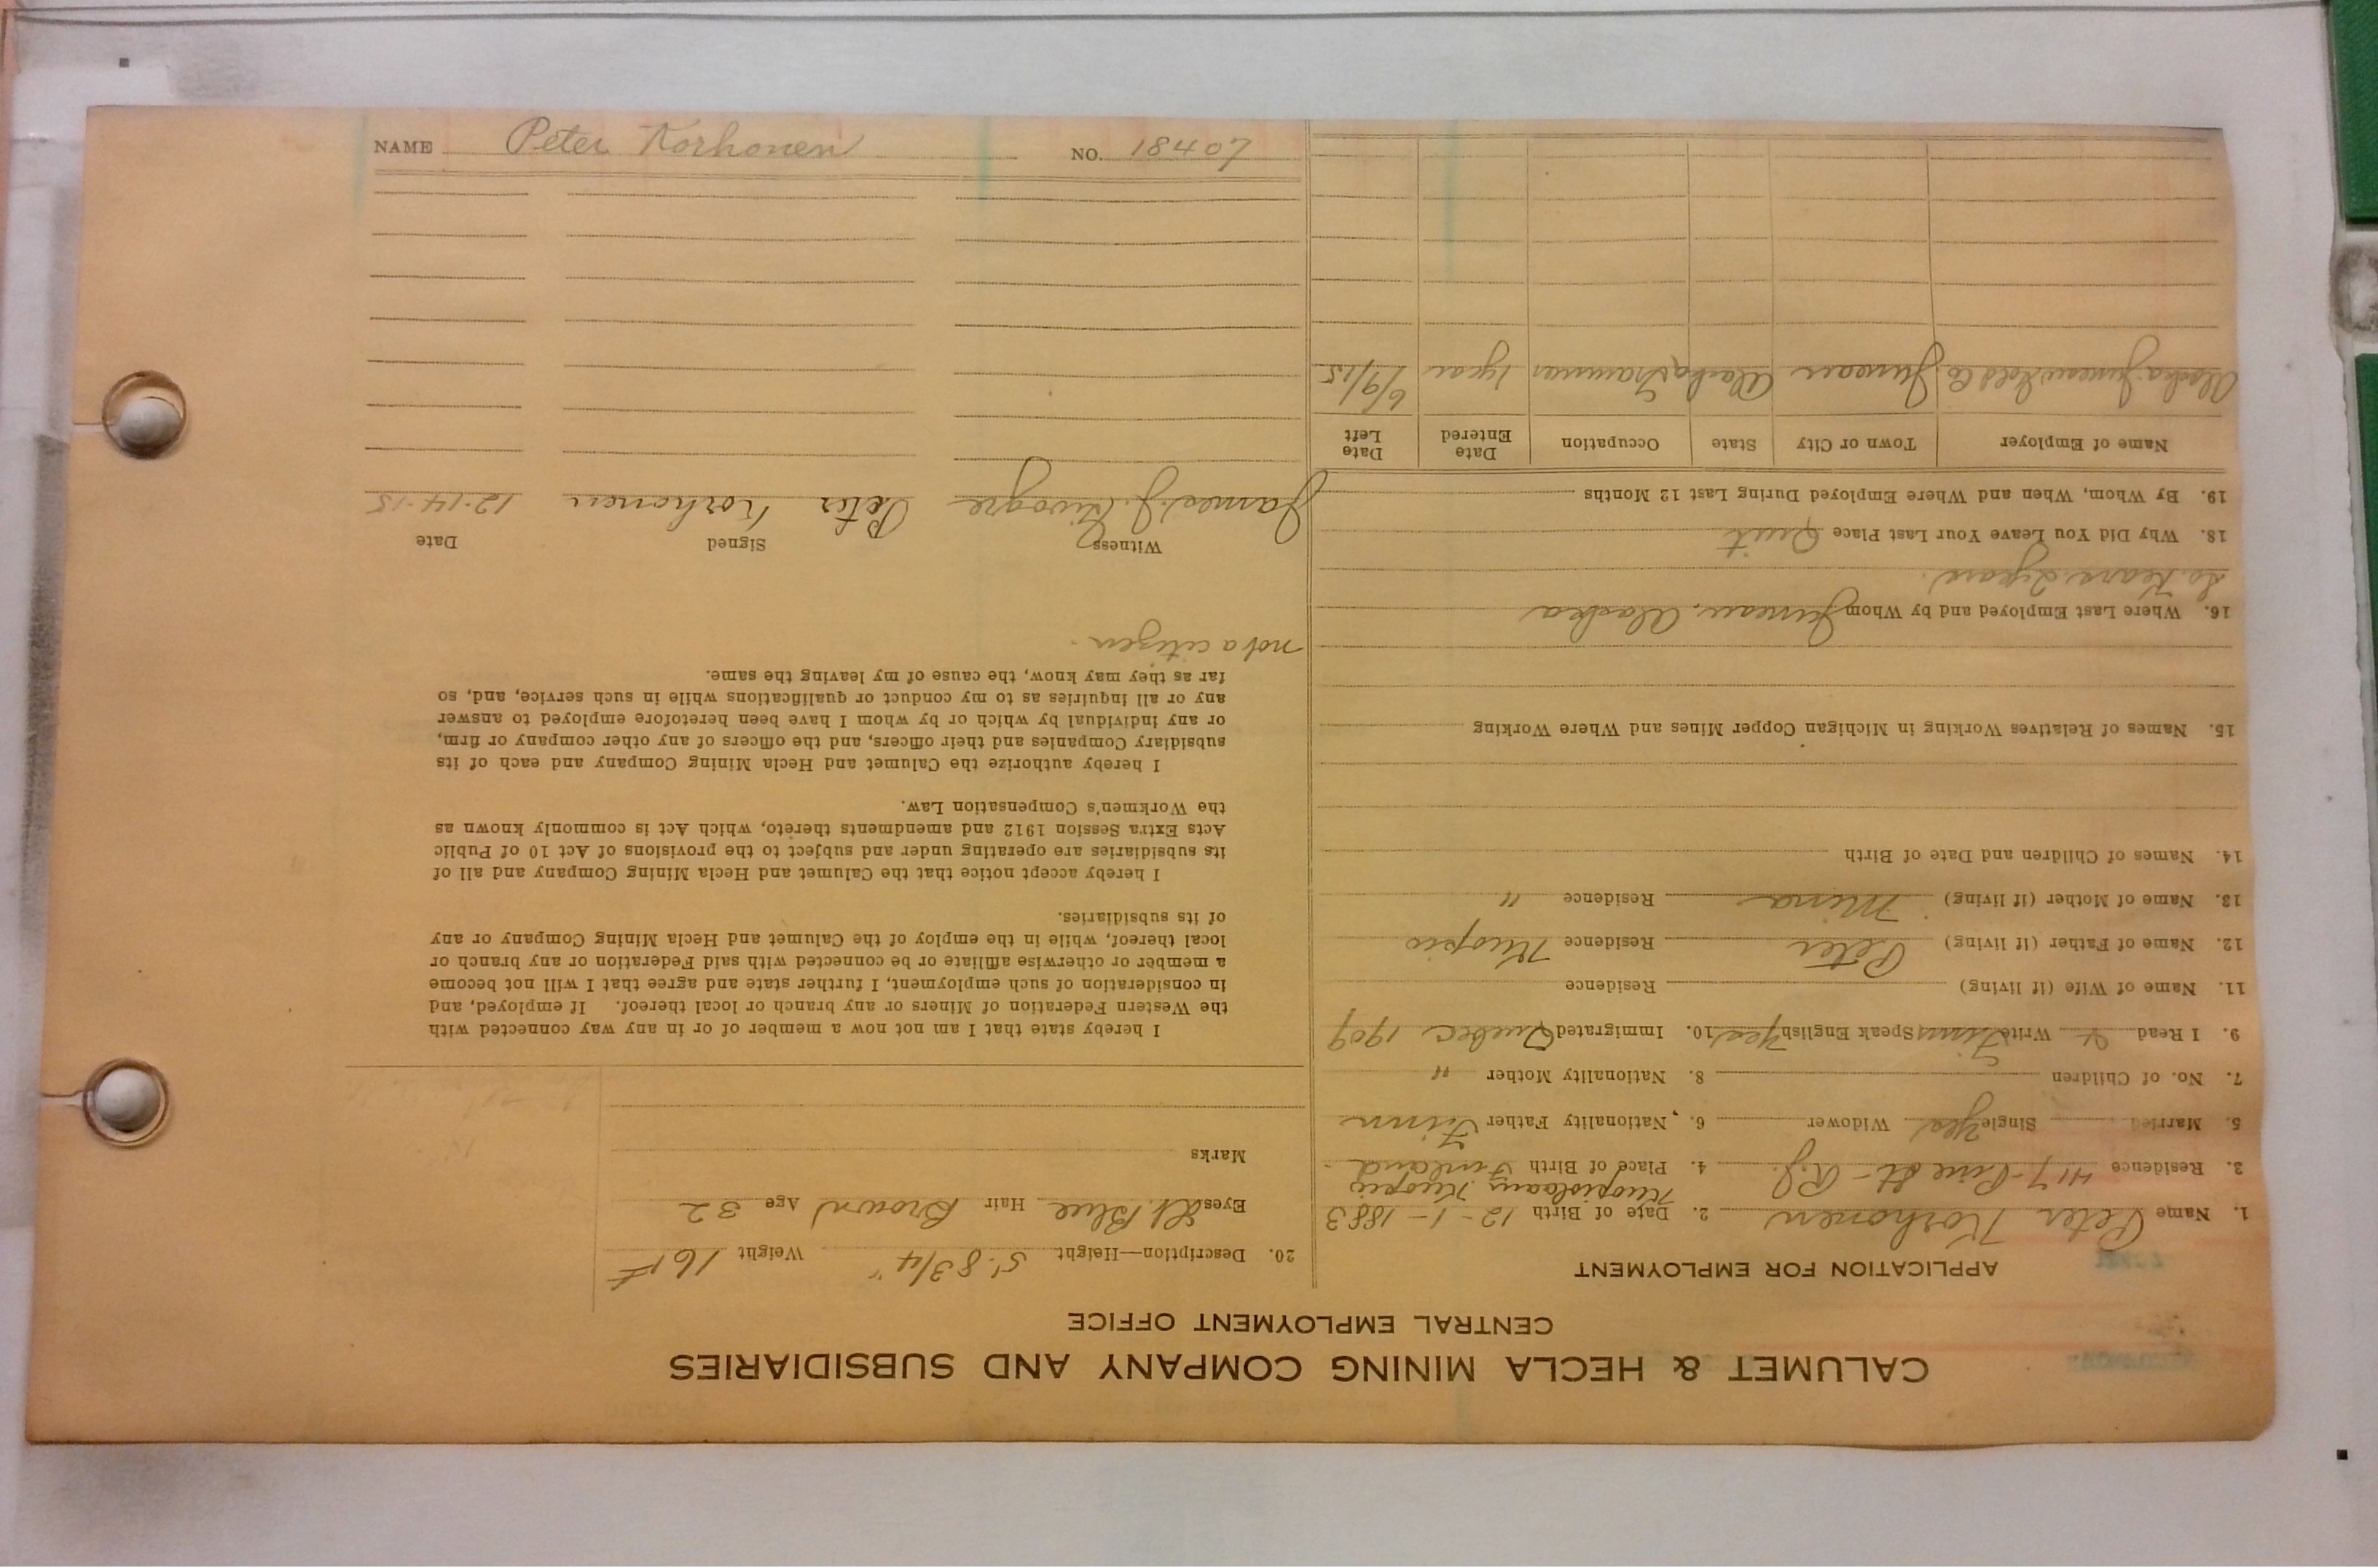 CALUMET & HECLA MINING COMPANY AND SUBSIDIARIES
CENTRAL EMPLOYMENT OFFICE
APPLICATION FOR EMPLOYMENT
1. Name Peter Korhonen 2. Date of Birth 12-1-1883
Kuopiolaany Kuopio
3. Residence 417-Pine St - R.J. 4. Place of Birth Finland
5. Married Single Yes Widower 6. Nationality Father Finn
7. No. of Children 8. Nationality Mother "
9. I Read & Write Finnis Speak English Yes 10. Immigrated Quebec 1909
11. Name of Wife (if living) Residence
12. Name of Father (if living) Peter Residence Kuopio
13. Name of Mother (if living) Mina Residence "
14. Names of Children and Date of Birth
15. Names of Relatives Working in Michigan Copper Mines and Where Working
16. Where Last Employed and by Whom Juneau, Alaska
So. Kears. 2 years.
18. Why Did You Leave Your Last Place Quit
19. By Whom, When and Where Employed During Last 12 Months
Name of Employer Town or City State Occupation Date Entered Date Left
Alaska Juneau Gold Co. Juneau Alaska Trammer 1 year 6/9/15
20. Description—Height 5' 8 3/4" Weight 161#
Eyes Lt Blue Hair Brown Age 32
Marks
I hereby state that I am not now a member of or in any way connected with
the Western Federation of Miners or any branch or local thereof. If employed, and
in consideration of such employment, I further state and agree that I will not become
a member or otherwise affiliate or be connected with said Federation or any branch or
local thereof, while in the employ of the Calumet and Hecla Mining Company or any
of its subsidiaries.
I hereby accept notice that the Calumet and Hecla Mining Company and all of
its subsidiaries are operating under and subject to the provisions of Act 10 of Public
Acts Extra Session 1912 and amendments thereto, which Act is commonly known as
the Workmen's Compensation Law.
I hereby authorize the Calumet and Hecla Mining Company and each of its
subsidiary Companies and their officers, and the officers of any other company or firm,
or any individual by which or by whom I have been heretofore employed to answer
any or all inquiries as to my conduct or qualifications while in such service, and, so
far as they may know, the cause of my leaving the same.
not a citizen.
Witness Signed Date
James J. Peter Korhonen 12-14-15
NAME Peter Korhonen NO. 18407